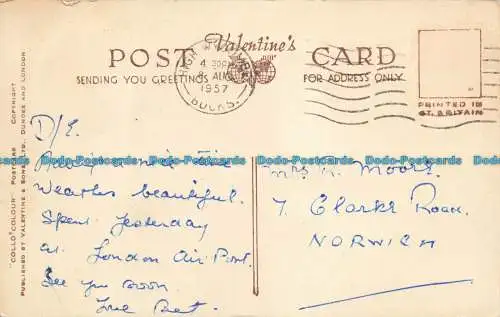 POST Valentine's CARD
SENDING YOU GREETINGS
FOR ADDRESS ONLY
4
8 AUG
1957
BUCKS.
PRINTED IN
GT. BRITAIN
"COLLO COLOUR" POSTCARD COPYRIGHT
PUBLISHED BY VALENTINE & SONS, LTD., DUNDEE AND LONDON
D/E.
Having a nice time
Weather beautiful.
Spent yesterday
at London Air Port.
See you soon.
Love Bet.
Mrs Moore
7 Clarke Road.
NORWICH
Dodo-Postcards Dodo-Postcards Dodo-Postcards Dodo-Postcards Dodo-Postcards